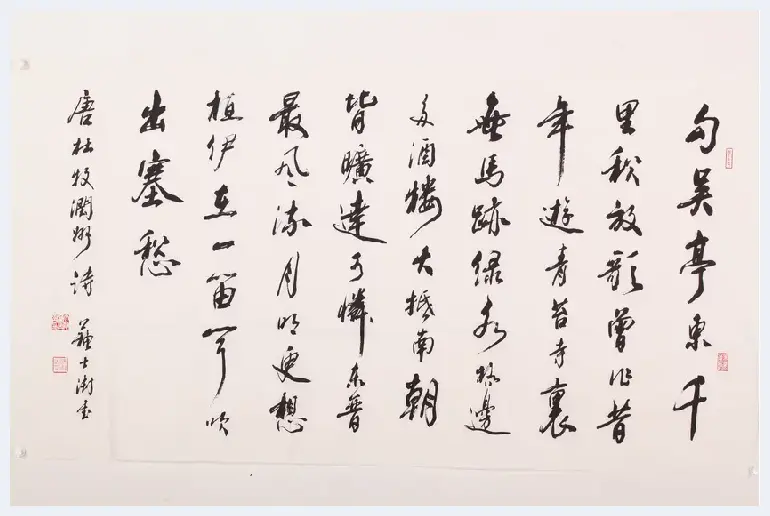 句吳亭東千
里秋放歌曾作昔
年遊青苔寺裏
無馬跡綠水橋邊
多酒樓大抵南朝
皆曠達可憐東晉
最風流月明更想
桓伊在一笛聞吹
出塞愁
唐杜牧潤州詩 蘇士澍書